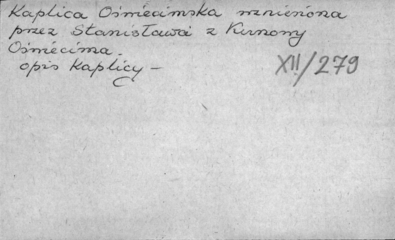 Kaplica Ośmięcimska wzniesiona
przez Stanisława z Kunowy
Ośmięcima.
opis Kaplicy —
XII/279